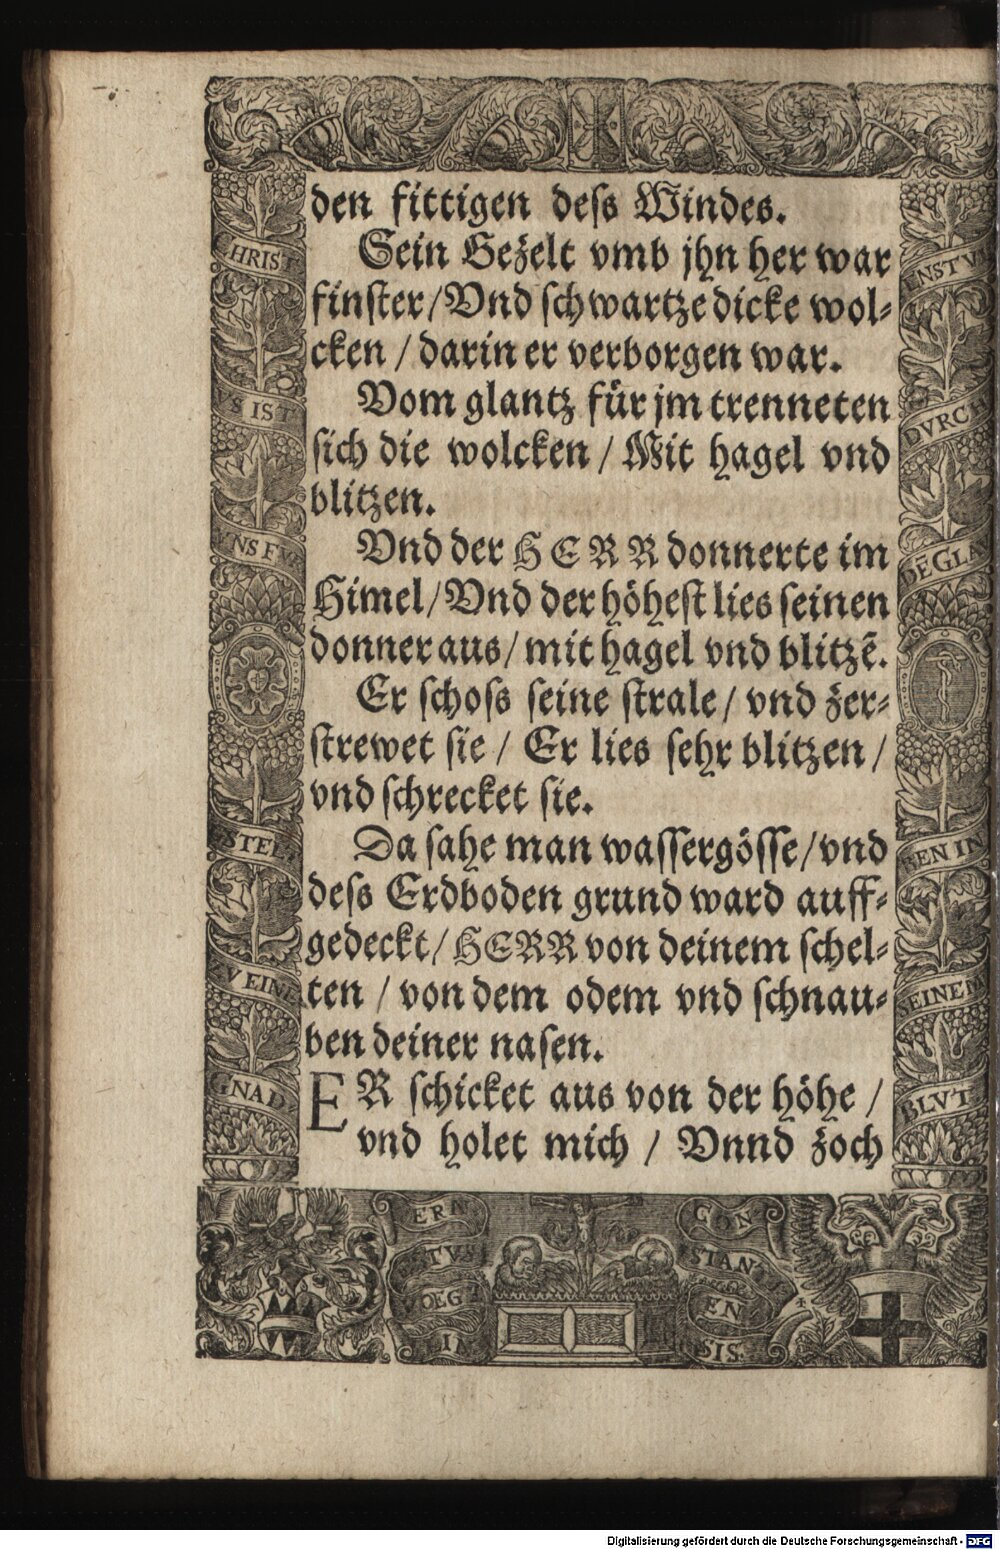 den fittigen dess Windes.
Sein Gezelt vmb jhn her war
finster/Vnd schwartze dicke wol-
cken / darin er verborgen war.
Vom glantz für jm trenneten
sich die wolcken / Mit hagel vnd
blitzen.
Vnd der HERR donnerte im
Himel/Vnd der höhest lies seinen
donner aus/ mit hagel vnd blitzē.
Er schoss seine strale / vnd zer-
strewet sie / Er lies sehr blitzen /
vnd schrecket sie.
Da sahe man wassergösse/vnd
dess Erdboden grund ward auff-
gedeckt/ HERR von deinem schel-
ten / von dem odem vnd schnau-
ben deiner nasen.
ER schicket aus von der höhe /
vnd holet mich / Vnnd zoch
HRIST
VS IST
VNS FV
STEL
ZV EINE
GNAD
NSTV
DVRCH
DE GLA
BEN IN
SEINEM
BLVT
ERN
TVS
VOEGT
IN
CON
STANT
EN
SIS.
Digitalisierung gefördert durch die Deutsche Forschungsgemeinschaft - DFG